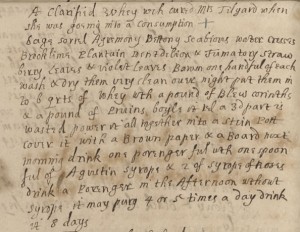 A Clarifid Whey wch cured Mrs Tilyard when
she was going into a Consumption
Eaga sorrel Agermony Bittony Scabious water Creeces
Brooklime Plantain Fumatory Straw
Leaves & violet Leaves Bawm one handful of each
wash & dry them very clean over night put them in
to 6 qrts of whey with a pound of Blew Corinths
& a pound of Pruins boyle it till a 3d part is
waisted power it all together into a Stein Pott
cover it with a Brown paper & a Board next
morning drink one poringer full wth one spoon
full of Agustin Syrope & 2 of Syrope of Roses
drink a Poringer in the Afternoon without
Syrope it may purg 4 or 5 times a day drink
it 8 days